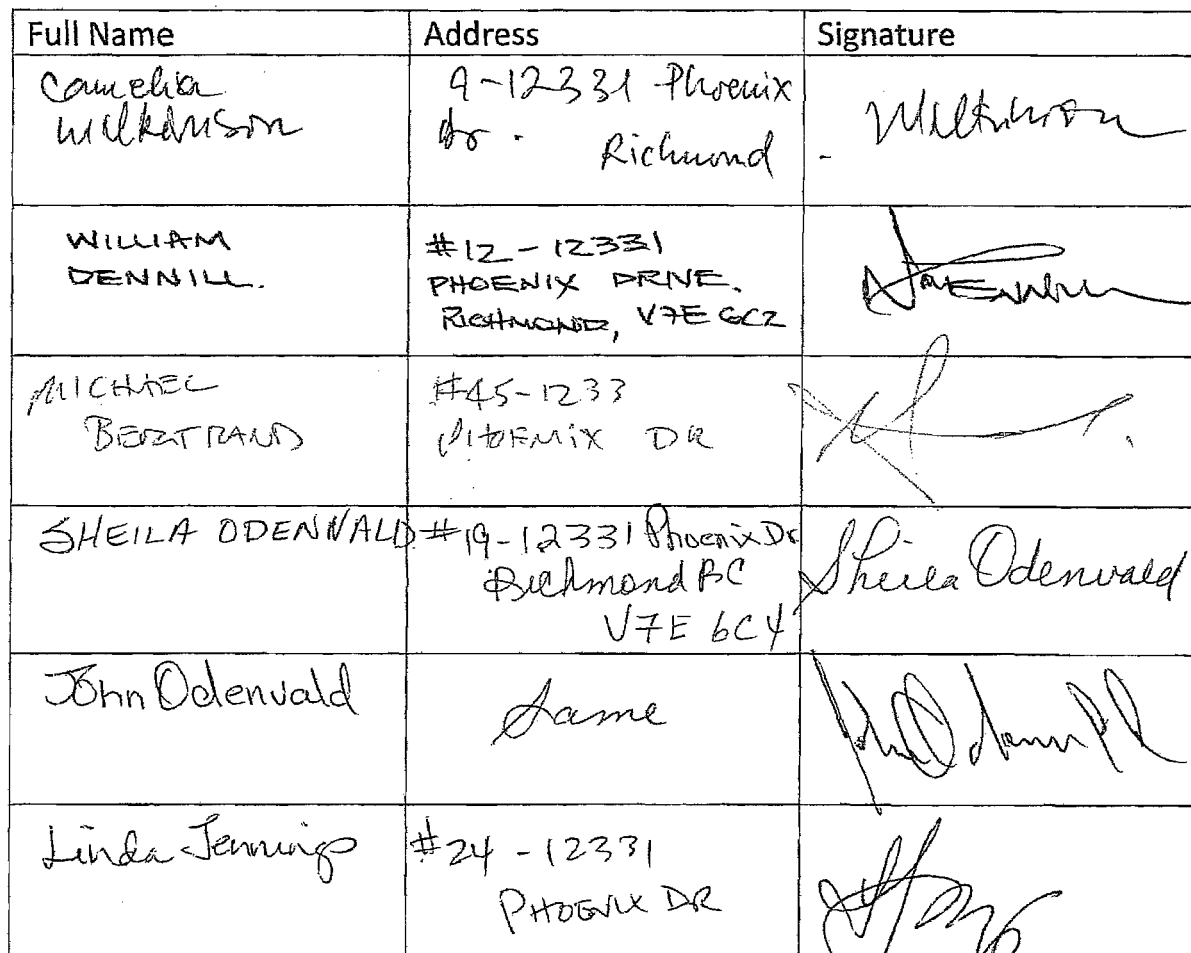 Full Name Address Signature
Camelia
Wilkinson
9-12331 Phoenix
Dr.
Richmond
Wilkinson
WILLIAM
DENNILL.
#12-12331
PHOENIX DRIVE.
RICHMOND, V7E 6C2
MICHAEL
BERTRAND
#45-1233
PHOENIX DR
SHEILA ODENVALD
#19-12331 Phoenix Dr
Richmond BC
V7E 6C4
Sheila Odenvald
John Odenvald
Same
John Odenvald
Linda Jennings
#24-12331
PHOENIX DR